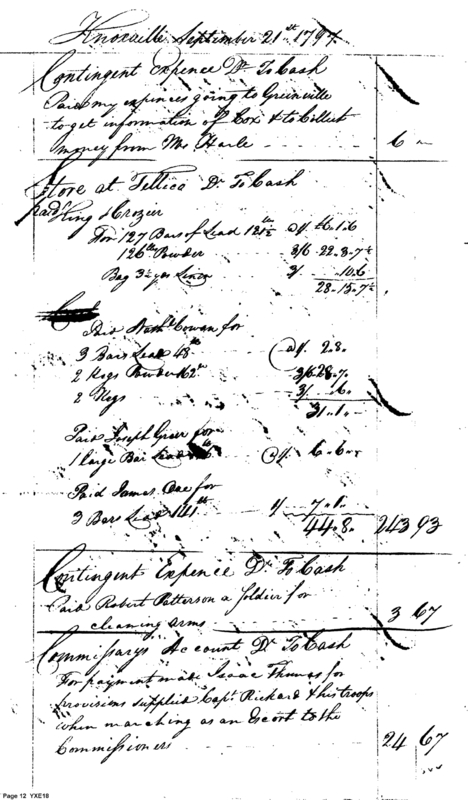 Knoxville September 21st 1797
Contingent Expence Dr To Cash
Paid my expences going to Greinville
to get information of Cox & to Collect
money from Mr Harle 6 "
Store at Tellico Dr To Cash
paid King & Crozier
For 127 Bars of Lead @1/
126lb Powder 3/6 22.8.7½
Bag 3½ yds Linen 3/ 10.6
28.15.7½
Paid Cowan for
3 Bars Lead 48lb @1/ 2.8.
2 Kegs Powder 162lb 3/6 28.7.
2 Kegs 3/ 6.
31.1.
Paid Joseph Greer for
1 large Bar Lead @1/ 6.6.
Paid James for
3 Bars Lead 141lb 1/ 7.1.
44.8. 243 93
Contingent Expence Dr To Cash
Paid Robert Patterson a Soldier for
cleaning arms 3 67
Commissarys Account Dr To Cash
For payment made Isaac Thomas for
provisions supplied Capt. Rickard & his troops
when marching as an Escort to the
Commissioners 24 67
Page 12 YXE18